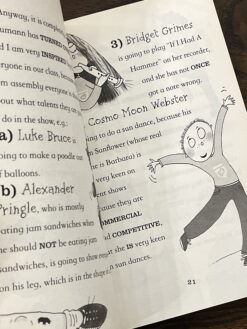 Anyway, it c
umann has TURNED
nd I am very INSPIRED
eryone in our class, becau
om assembly everyone is
out what talents they
do in the show, e.g.:
a) Luke Bruce is
oing to make a poodle out
of balloons.
b) Alexander
Pringle, who is mostly
eating jam sandwiches when
he should NOT be eating jam
sandwiches, is going to show
on his leg, which is in the shape
3) Bridget Grimes
is going to play "If I Had A
Hammer" on her recorder,
and she has not ONCE
got a note wrong.
Cosmo Moon Webster
ing to do a sun dance, because his
Sunflower (whose real
e is Barbara) is
very keen on
ent shows
cause they are
OMMERCIAL
d COMPETITIVE,
t she IS very keen
n sun dances.
21